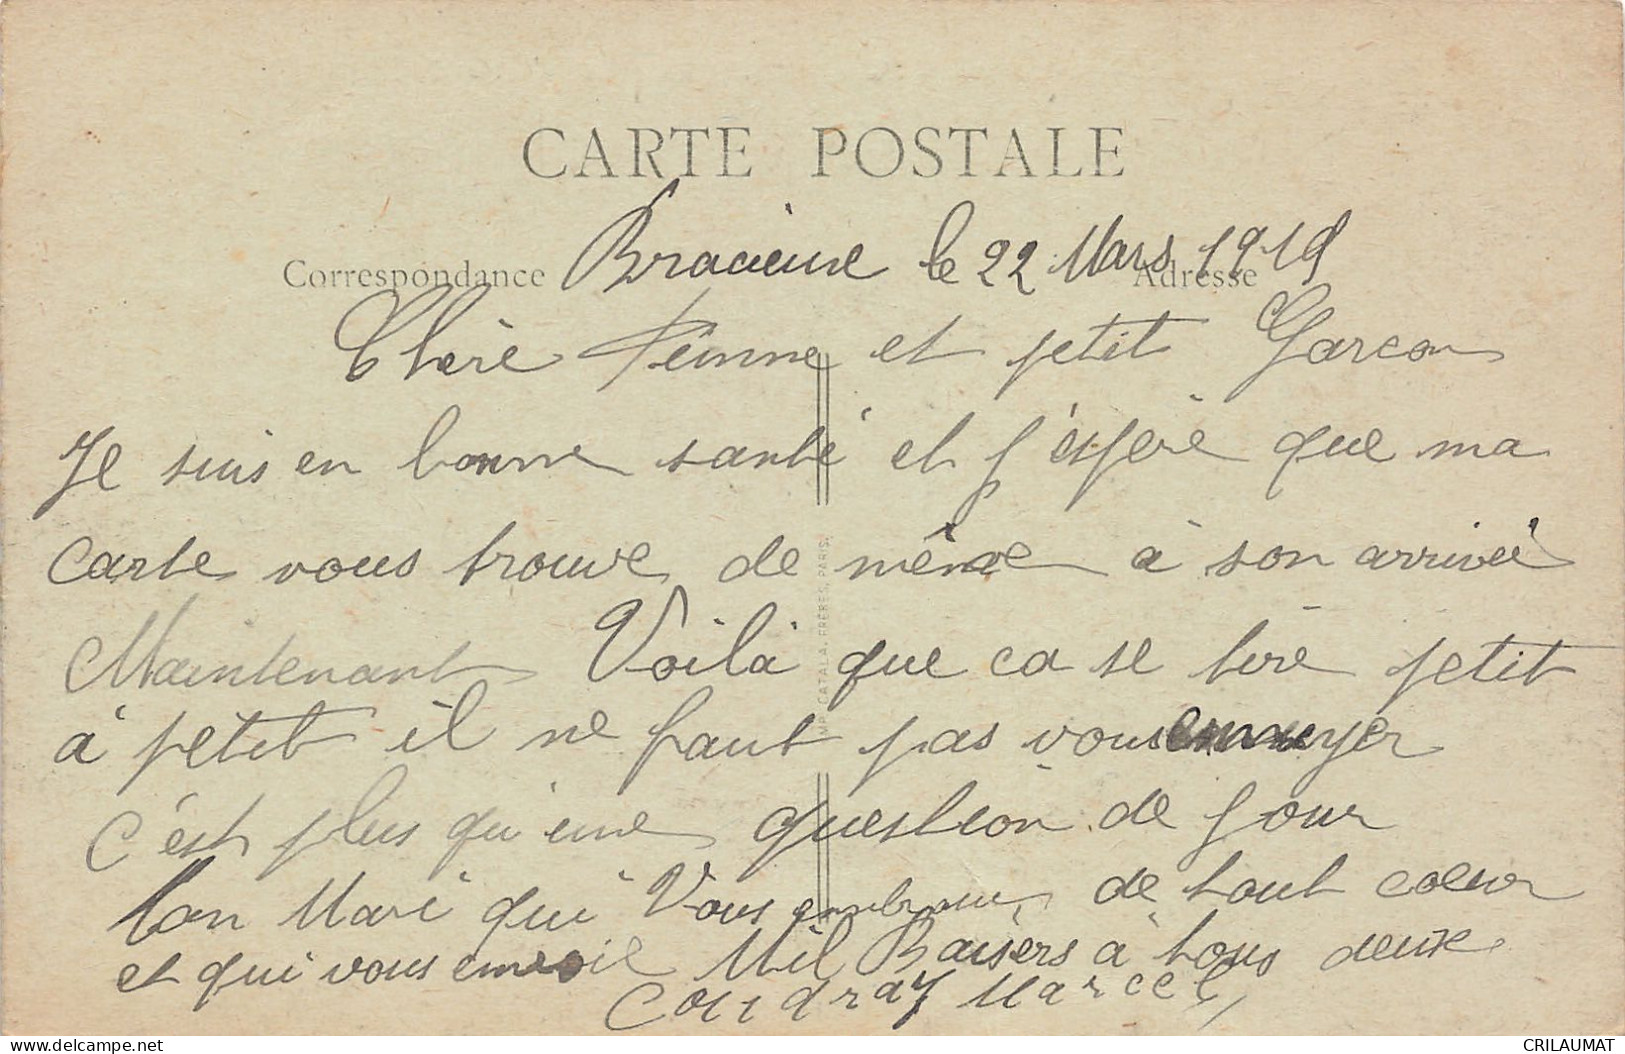 CARTE POSTALE
Correspondance
Adresse
Bracieuse le 22 Mars 1919
Chère Femme et petit Garcon
Je suis en bonne santé et j'espère que ma
carte vous trouve de même à son arrivée
Maintenant Voilà que ca se tire petit
à petit il ne faut pas vous ennuyer
c'est plus qu'une question de jour
Ton Mari qui Vous embrasse de tout coeur
et qui vous envoie Mil Baisers à tous deux
Coudray Marcel
IMP. CATALA FRERES, PARIS.
delcampe.net
CRILAUMAT